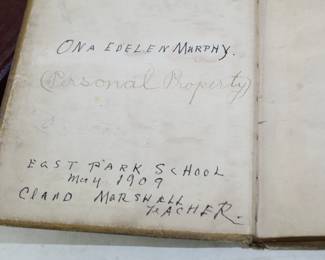 ONA EDELEN MURPHY.
(Personal Property)
EAST PARK SCHOOL
May 1909
CLAUD MARSHALL
TEACHER.